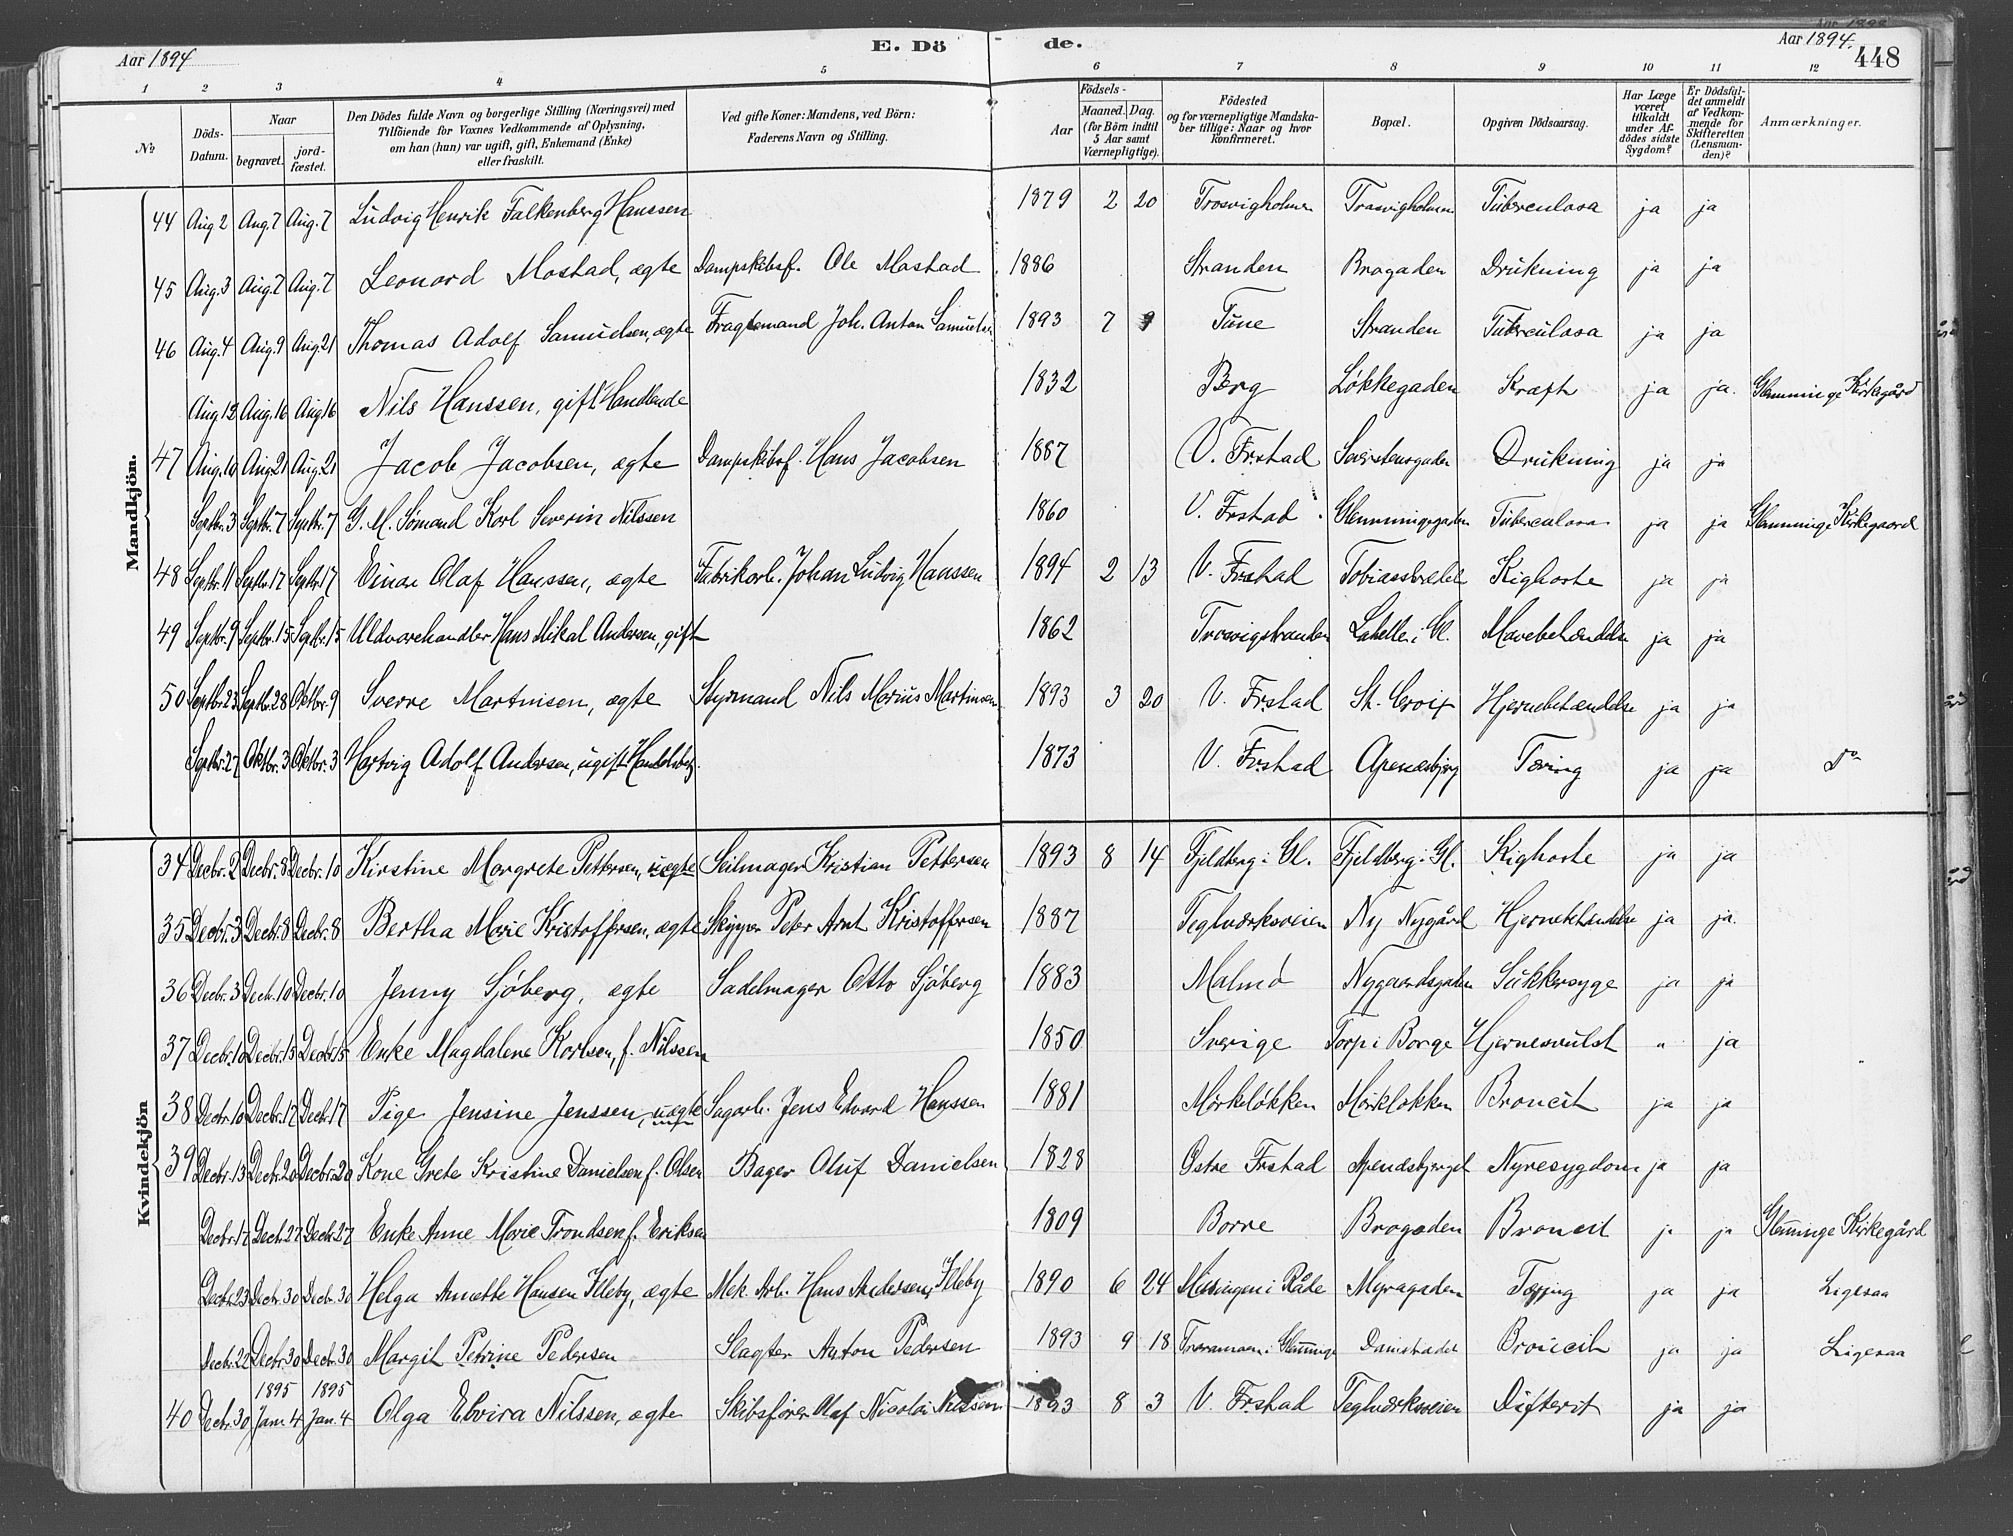 Aar 1894
E. Dö
de.
Aar 1894.
448
1 2 3 4 5 6 7 8 9 10 11 12
№
Döds-Datum.
Naar
begravet.
jord-fæstet.
Den Dödes fulde Navn og borgerlige Stilling (Næringsvei) med
Tilföiende for Voxnes Vedkommende af Oplysning,
om han (hun) var ugift, gift, Enkemand (Enke)
eller fraskilt.
Ved gifte Koner: Mandens, ved Börn:
Faderens Navn og Stilling.
Födsels-
Aar
Maaned.
Dag.
(for Börn indtil
5 Aar samt
Værnepligtige).
Födested
og for værnepligtige Mandska-
ber tillige: Naar og hvor
konfirmeret.
Bopæl.
Opgiven Dödsaarsag.
Har Læge
været
tilkaldt
under Af-
dödes sidste
Sygdom?
Er Dödsfal-
det anmeldt
af Vedkom-
mende for
Skifteretten
(Lensman-
den)?
Anmærkninger.
Mandkjön.
44 Aug 2 Aug. 7 Aug. 7 Ludvig Henrik Falkenberg Hanssen 1879 2 20 Trosvigholmen Trosvigholmen Tuberculosa ja ja
45 Aug. 3 Aug. 7 Aug. 7 Leonard Mostad, ægte Dampskibsf. Ole Mostad 1886 Stranden Brogaden Drukning ja ja
46 Aug. 4 Aug. 9 Aug. 21 Thomas Adolf Samuelsen, ægte Fragtemand Joh. Anton Samuelsen 1893 7 9 Tune Stranden Tuberculosa ja ja
Aug. 12 Aug. 16 Aug 16 Nils Hanssen, gift Handlende 1832 Berg Løkkegaden Kræft ja ja. Glemminge Kirkegård
47 Aug. 10 Aug. 21 Aug. 21 Jacob Jacobsen, ægte Dampskibsf. Hans Jacobsen 1887 V. Frstad Drukning ja ja
Septbr. 3 Septbr. 7 Septbr. 7 G. M. Sømand Karl Severin Nilssen 1860 V. Frstad Glemmingegaden Tuberculosa ja ja Glemminge Kirkegaard
48 Septbr. 11 Septbr. 17 Septbr. 17 Einar Olaf Hanssen, ægte Fabrikarb. Johan Ludvig Hanssen 1894 2 13 V. Frstad Kighoste ja ja
49 Septbr. 9 Septbr. 15 Septbr. 15 Uldvarehandler Hans Mikal Andersen, gift 1862 Trosvigstranden Labelle i Gl. Mavebetændelse ja ja
50 Septbr. 23 Septbr. 28 Oktbr. 9 Sverre Martinsen, ægte Styrmand Nils Marius Martinsen 1893 3 20 V. Frstad St. Croix Hjernebetændelse ja ja
Septbr. 27 Oktbr. 3 Oktbr. 3 Hartvig Adolf Andersen, ugift Handelsbetj. 1873 V. Frstad Apenesbjerg Tæring ja ja Do
Kvindekjön
34 Decbr. 2 Decbr. 8 Decbr. 10 Kirstine Margrete Pettersen, uægte Seilmager Kristian Pettersen 1893 8 14 Fjeldberg i Gl. Fjeldberg i Gl. Kighoste ja ja
35 Decbr. 3 Decbr. 8 Decbr. 8 Bertha Marie Kristoffersen, ægte Skipper Peter Arnt Kristoffersen 1887 Teglværksveien Ny Nygård Hjernebetændelse ja ja.
36 Decbr. 3 Decb. 10 Decbr. 10 Jenny Sjöberg, ægte Sadelmager Otto Sjöberg 1883 Malmö Nygaardsgaden Sukkersyge ja ja
37 Decbr. 10 Decbr. 15 Decbr. 15 Enke Magdalene Karlsen, f. Nilssen 1850 Sverige Torp i Borge Hjernesvulst " ja
38 Decbr. 10 Decbr. 17 Decb. 17 Pige Jensine Jenssen, uægte Sagarb. Jens Edvard Hanssen 1881 Mörkeløkken Mörkeløkken Broncit ja ja
39 Decbr. 13 Decbr. 20 Decbr. 20 Kone Grete Kristine Danielsen f. Olsen Bager Oluf Danielsen 1828 Østre Frstad Apenesbjerget Nyresygdom ja ja
Decbr. 17 Decb. 27 Decb. 27 Enke Anne Marie Trondsen f. Eriksen 1809 Borre Brogaden Broncit ja ja Glemminge Kirkegård
Decbr. 23 Decbr. 30 Decb. 30 Helga Annette Hansen Ileby, ægte Mek. Arb. Hans Andersen Ileby 1890 6 24 Missingen i Råde Myragaden Tæring ja ja Ligesaa
Decbr. 22 Decbr. 30 Decb. 30 Margit Petrine Pedersen Slagter Anton Pedersen 1893 9 18 Damstredet Broncit ja ja Ligesaa
1895 1895
40 Decbr. 30 Jan. 4 Jan. 4 Olga Elvira Nilssen, ægte Skibsfører Olaf Nicolai Nilssen 1893 8 3 V. Frstad Teglværksveien Difterit ja ja